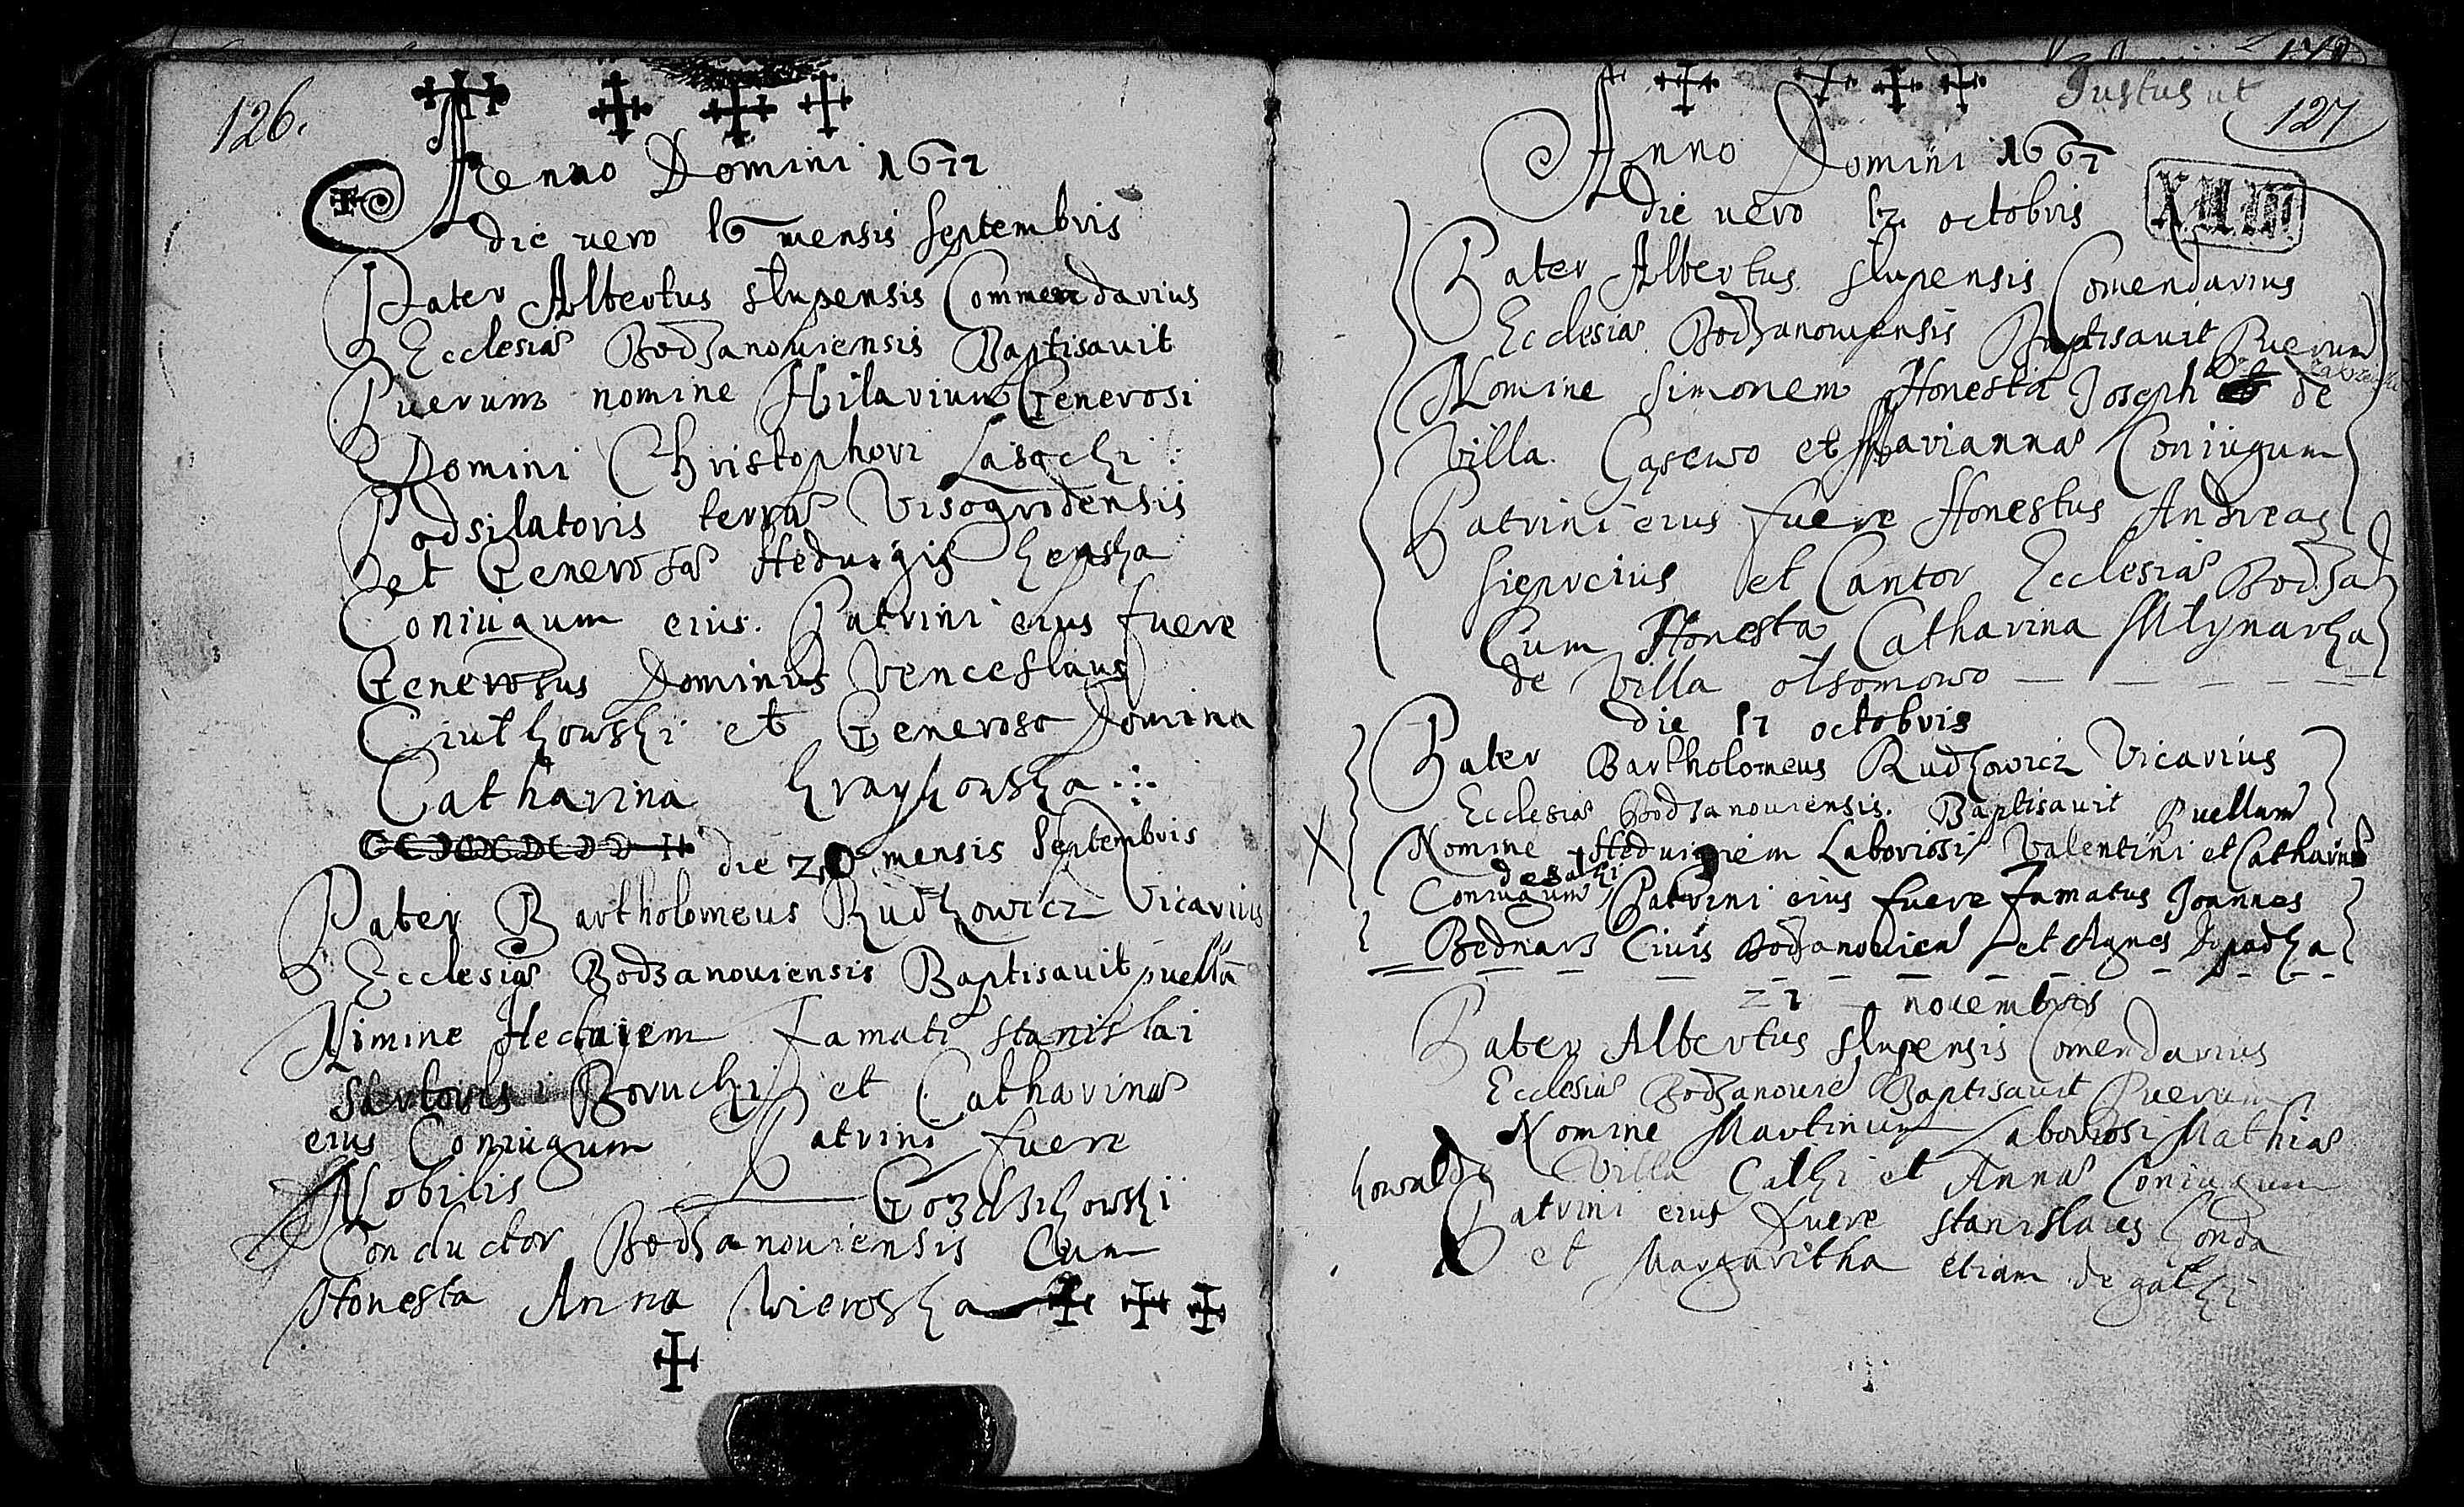 126.
Anno Domini 1671
die vero 16 mensis Septembris
Pater Albertus Slupensis Commendarius
Ecclesiæ Bodzanoviensis Baptisavit
Puerum nomine Hilarium Generosi
Domini Christophori Lasocki
Podsilatoris terræ Visogrodensis
et Generosæ Hedvigis
Coniugum eius. Patrini eius fuere
Generosus Dominus Venceslaus
Ciutkowski et Generosa Domina
Catharina Kraykowska
die 20 mensis Septembris
Pater Bartholomeus Rudkowicz Vicarius
Ecclesiæ Bodzanoviensis Baptisavit puellā
Nimine Famati Stanislai
Sartoris Borucki et Catharinæ
eius Coniugum Patrini fuere
Nobilis
Conductor Bodzanoviensis Cum
Honesta Anna
Justus ut
127
Anno Domini 1667
die vero 12 octobris
Pater Albertus Slupensis Comendarius
Ecclesiæ Bodzanoviensis Baptisavit Puerum
Nomine Simonem Honesta Joseph de
Villa Gąsewo et Mariannæ Coniugum
Patrini eius fuere Honestus Andreas
Sieprcius et Cantor Ecclesiæ Bodza
Cum Honesta Catharina Młynarka
de Villa
die 17 octobris
Pater Bartholomeus Rudkowicz Vicarius
Ecclesiæ Bodzanoviensis. Baptisavit Puellam
X Nomine Hedvigiem Laboriosi Valentini et Catharinæ
Coniugum Patrini eius fuere Famatus Joannes
Bednarz Civis Bodzanovien et Agnes
21 novembris
Pater Albertus Slupensis Comendarius
Ecclesiæ Bodzanovie Baptisavit Puerum
Nomine Martinum Laboriosi Mathiæ
Kowal de Villa Gałki et Annæ Coniugum
Patrini eius fuere Stanislaus Gonda
et Margaritha etiam de gałki